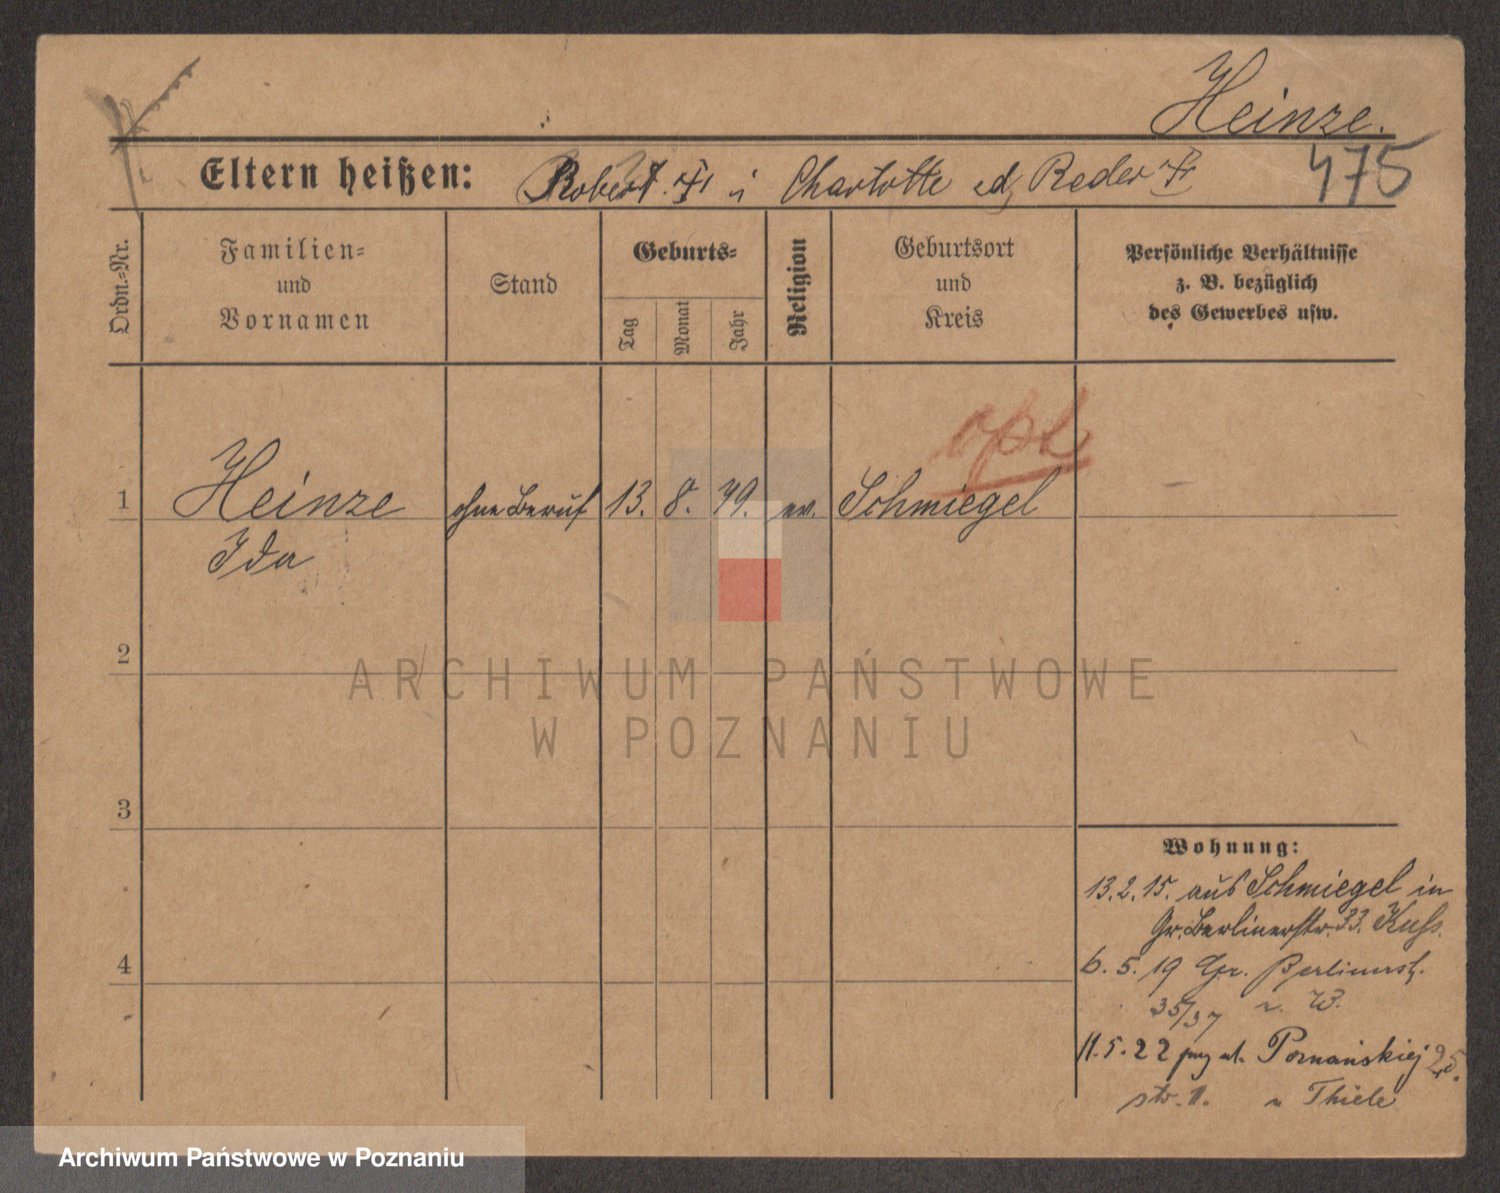 Heinze.
475
Eltern heißen: Robert i Charlotte Reder
Ordn.=Nr.
Familien=
und
Vornamen
Stand
Geburts=
Tag
Monat
Jahr
Religion
Geburtsort
und
Kreis
Persönliche Verhältnisse
z. B. bezüglich
des Gewerbes usw.
opt
1 Heinze ohne Beruf 13. 8. 79. ev. Schmiegel
Ida
2
3
4
Wohnung:
13.2.15. aus Schmiegel in
Gr. Berlinerstr. 33.
6. 5. 19 Gr. Berlinerst.
35/37 W.
11.5.22 Poznańskiej 25.
str. Thiele
ARCHIWUM PAŃSTWOWE
W POZNANIU
Archiwum Państwowe w Poznaniu